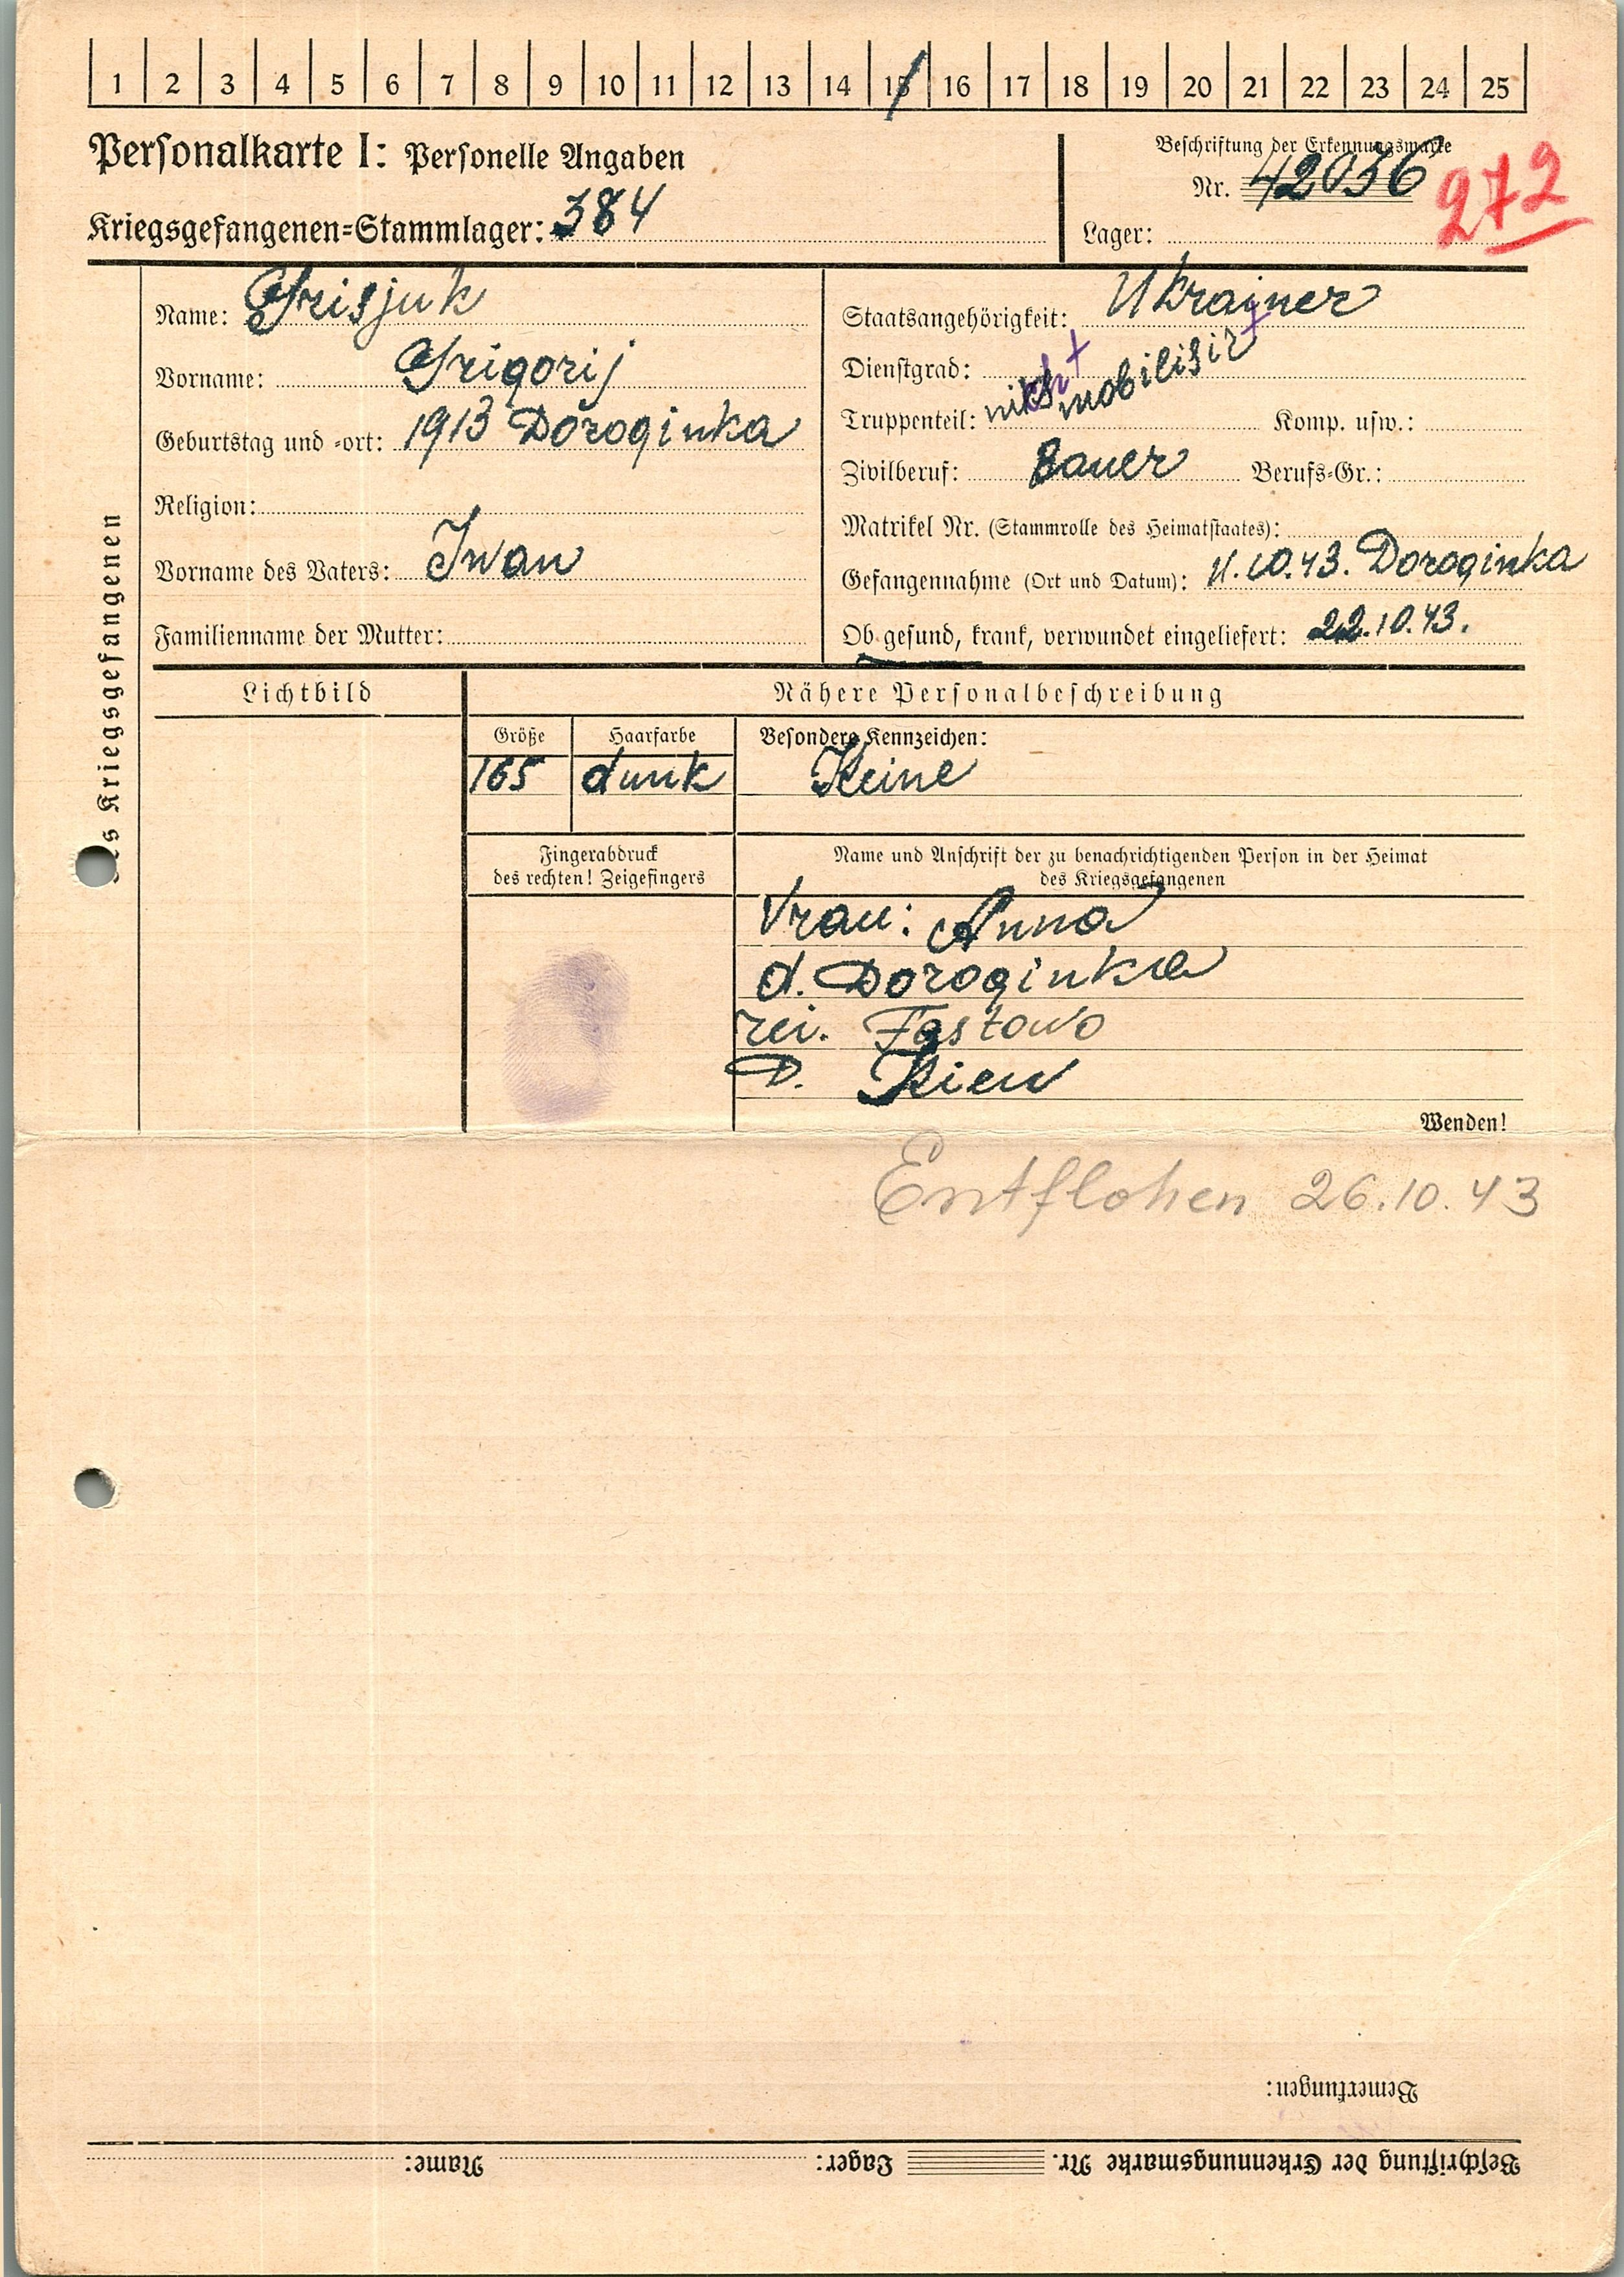 1 2 3 4 5 6 7 8 9 10 11 12 13 14 15 16 17 18 19 20 21 22 23 24 25
Personalkarte I: Personelle Angaben
Kriegsgefangenen-Stammlager: 384
Beschriftung der Erkennungsmarke
Nr. 42036
272
Lager:
des Kriegsgefangenen
Name: Grisjuk
Vorname: Grigorij
Geburtstag und -ort: 1913 Doroginka
Religion:
Vorname des Vaters: Iwan
Familienname der Mutter:
Staatsangehörigkeit: Ukrainer
Dienstgrad:
nicht mobilisirt
Truppenteil: Komp. usw.:
Zivilberuf: Bauer Berufs-Gr.:
Matrikel Nr. (Stammrolle des Heimatstaates):
Gefangennahme (Ort und Datum): 11.10.43. Doroginka
Ob gesund, krank, verwundet eingeliefert: 22.10.43.
Lichtbild
Nähere Personalbeschreibung
Größe Haarfarbe Besondere Kennzeichen:
165 dunk Keine
Fingerabdruck
des rechten! Zeigefingers
Name und Anschrift der zu benachrichtigenden Person in der Heimat
des Kriegsgefangenen
Vrau: Anna
d. Doroginka
rei. Fastowo
D. Kiew
Wenden!
Entflohen 26.10.43
Bemerkungen:
Beschriftung der Erkennungsmarke Nr. Lager: Name: